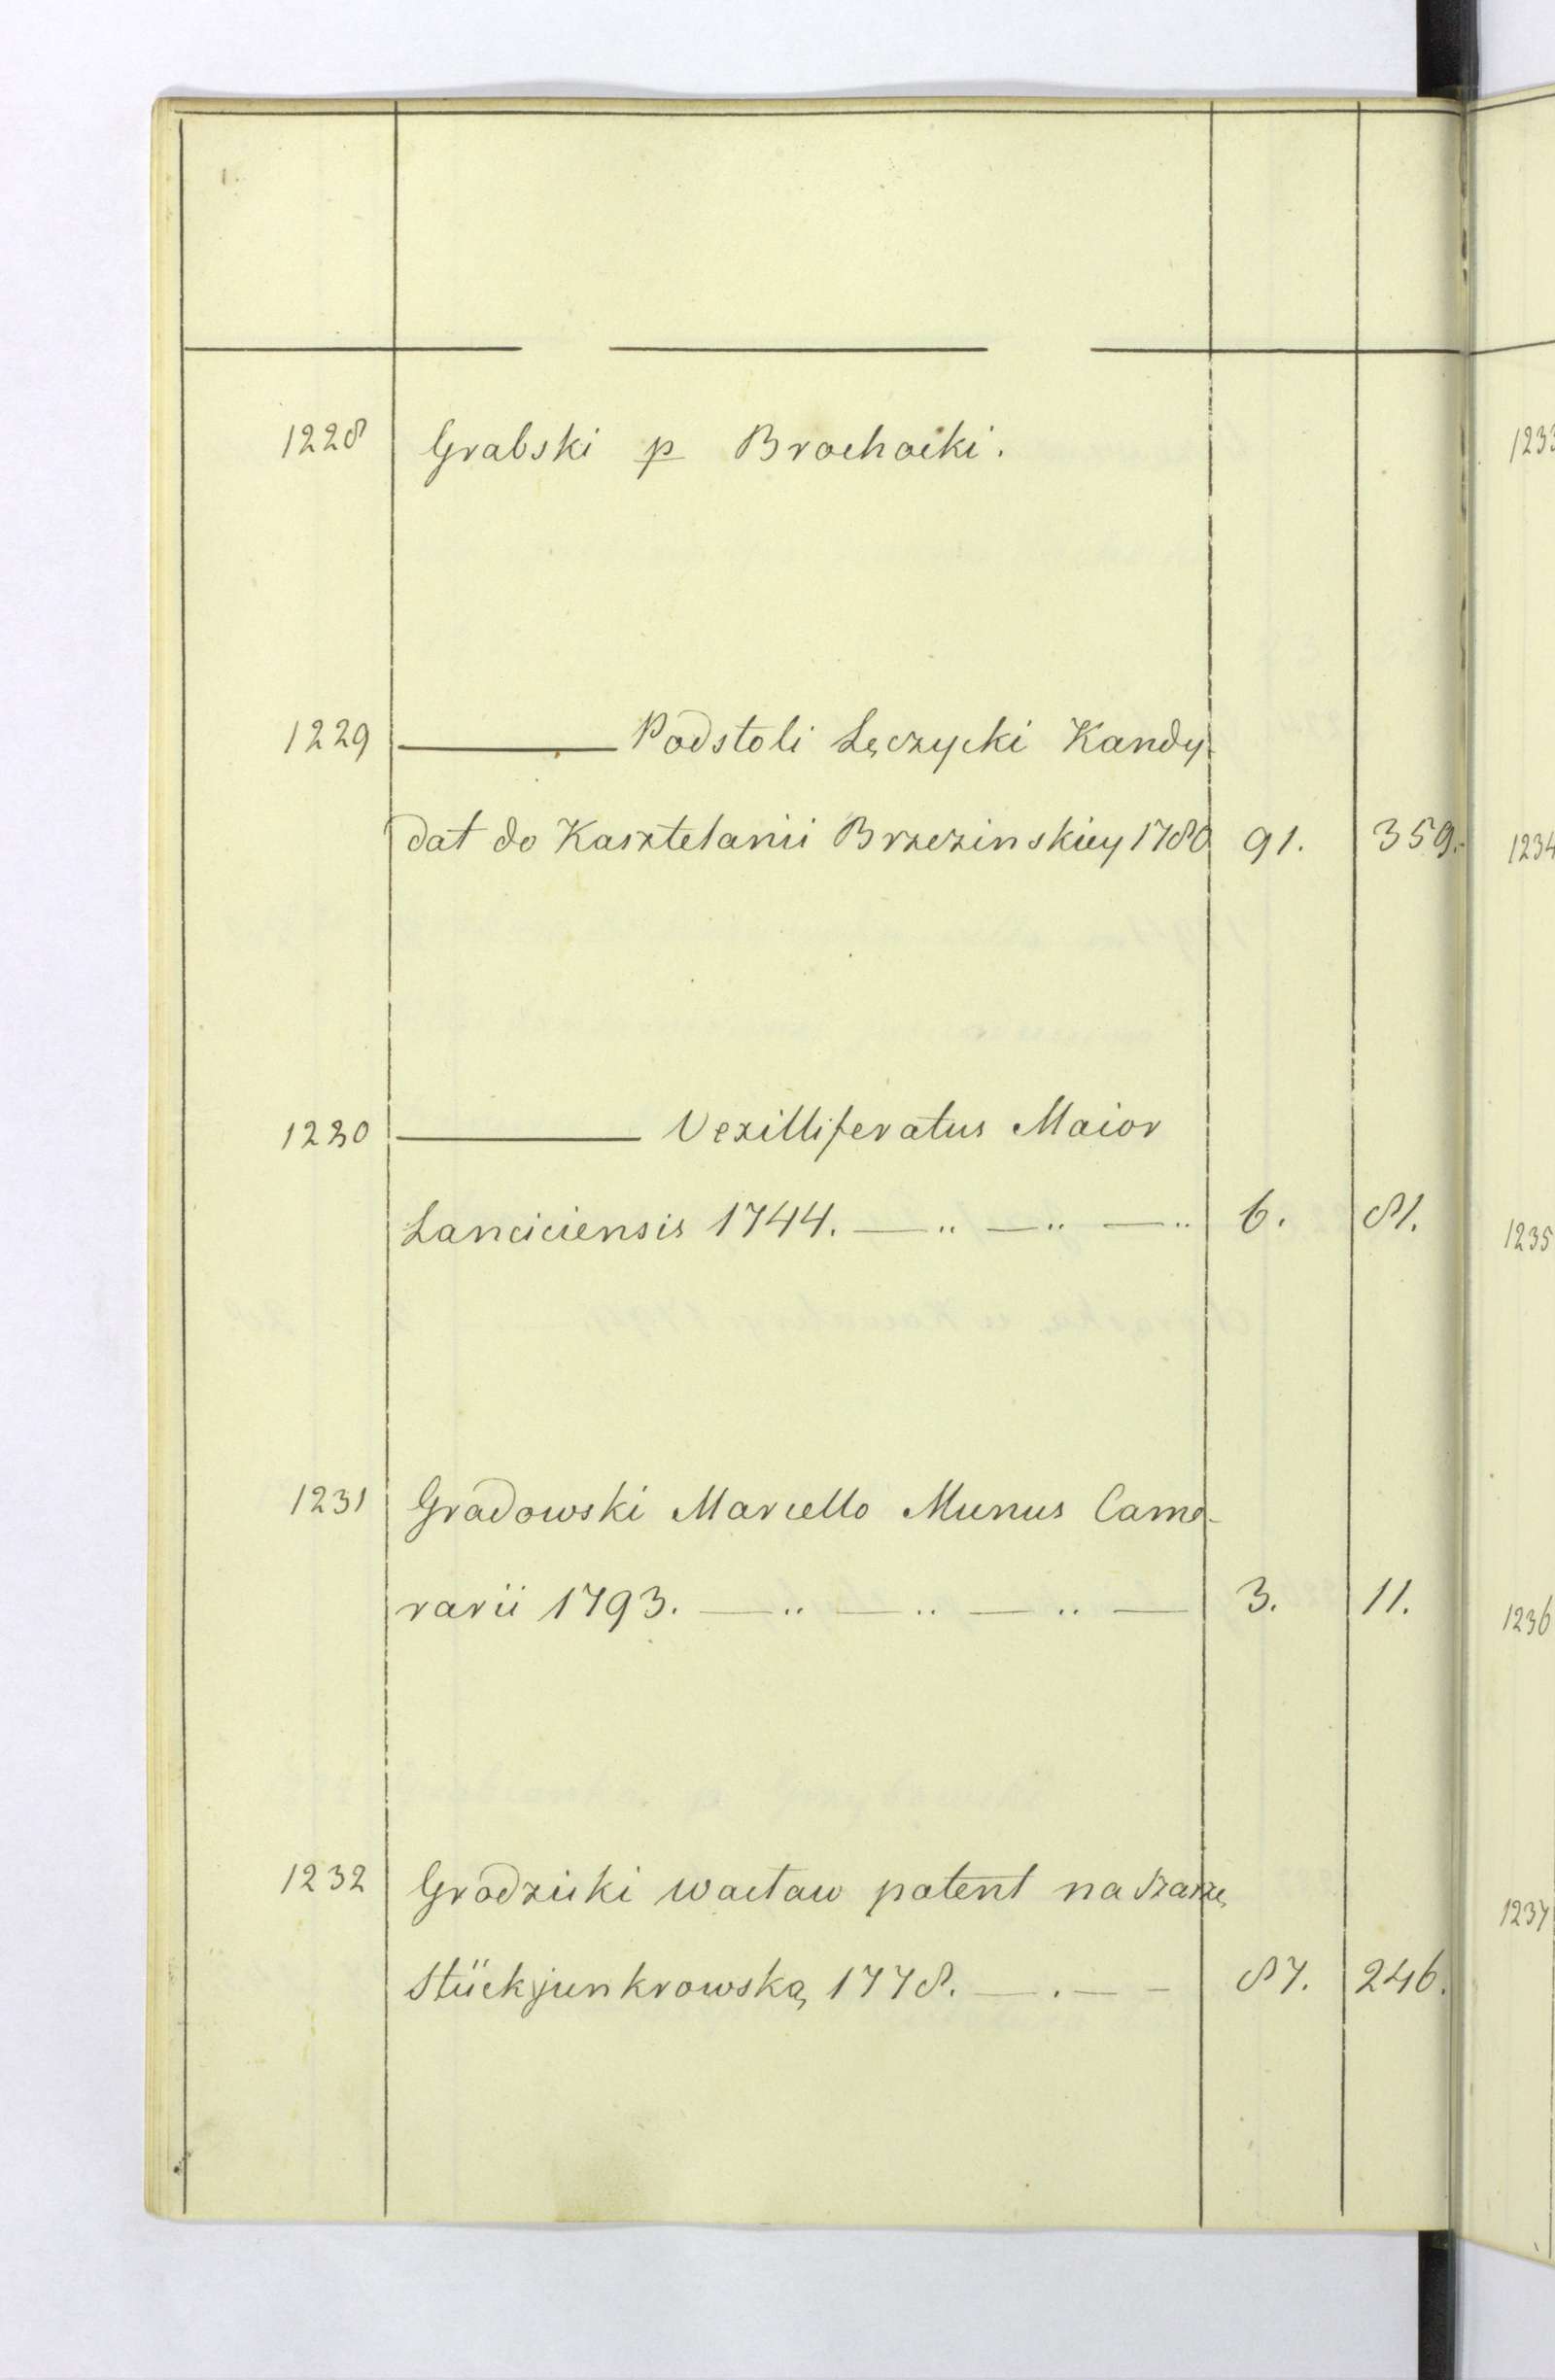 1228 Grabski p Brochocki.
1229 ——— Podstoli Lęczycki Kandy-
dat do Kasztelanii Brzezinskiey 1780 91. 359.
1230 ——— Vexilliferatus Maior
Lanciciensis 1744. — „ — „ — „ 6. 81.
1231 Gradowski Marcello Munus Came-
rarii 1793. — „ — „ — „ — 3. 11.
1232 Grodzicki Wacław patent na Szarżę
Stückjunkrowską 1778. — . — - 87. 246.
1233
1234
1235
1236
1237